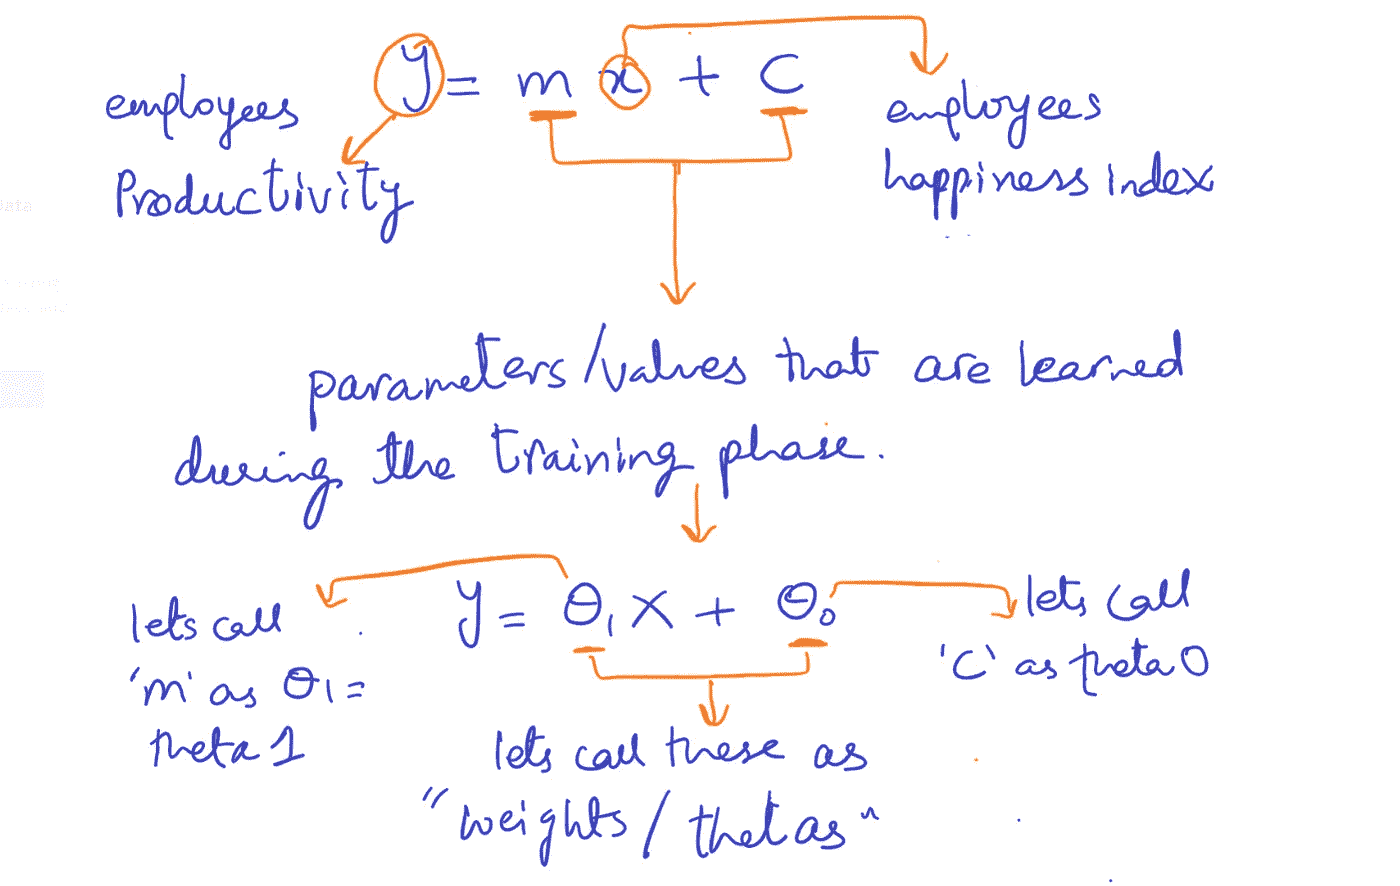 y = m x + C
employees
Productivity
employees
happiness index
parameters/values that are learned
during the training phase.
y = θ₁ x + θ₀
lets call
'm' as θ1 =
theta 1
lets call
'C' as theta 0
lets call these as
"weights / thetas"